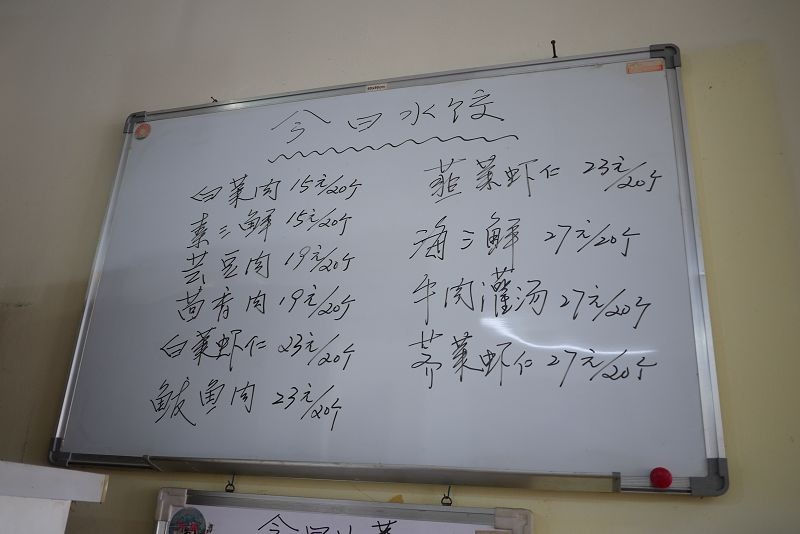 今日水饺
白菜肉 15元/20个
素三鲜 15元/20个
芸豆肉 19元/20个
茴香肉 19元/20个
白菜虾仁 23元/20个
鲅鱼肉 23元/20个
韮菜虾仁 23元/20个
海三鲜 27元/20个
牛肉灌汤 27元/20个
荠菜虾仁 27元/20个
今日小菜